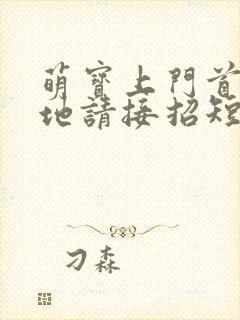 萌寶上門首
地請接招短
刁森